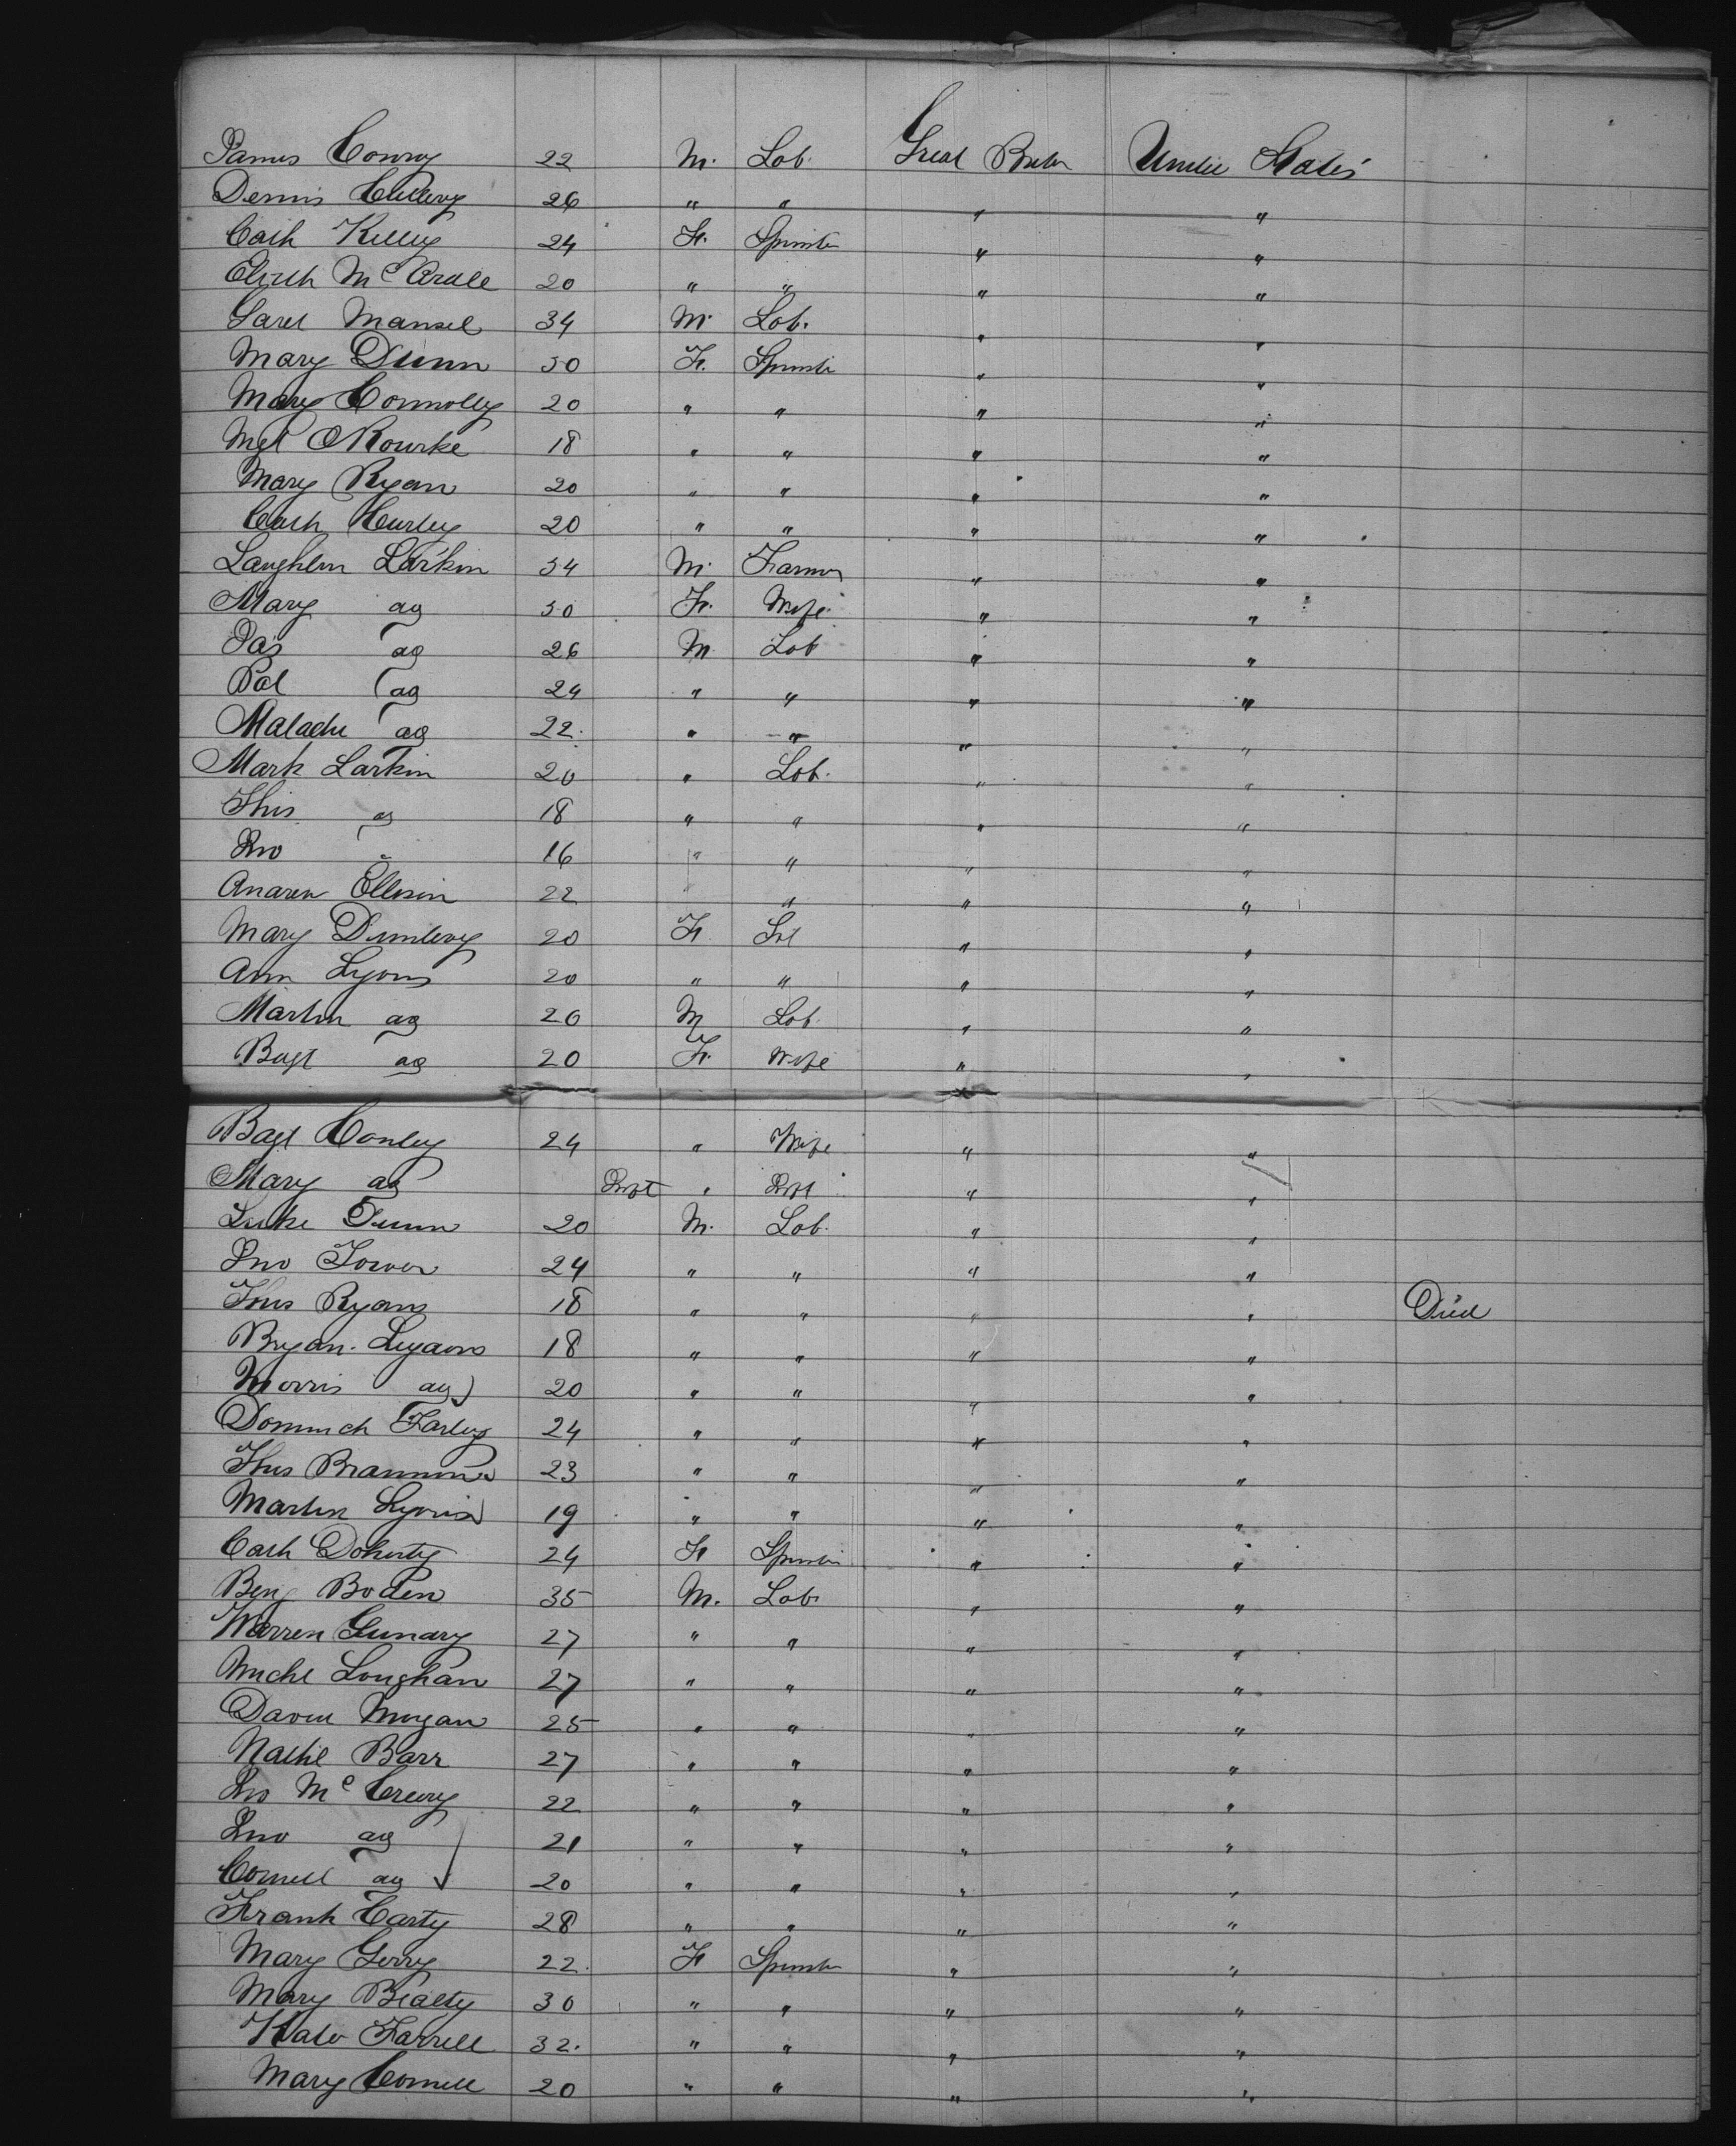 James Conroy 22 M. Lab. Great Britn United States
Dennis 26 " " " "
Cath Kelley 24 F. Spinster " "
Elizth McArdle 20 " " " "
Garet Mansel 34 M. Lab. " "
Mary Dunn 30 F. Spinster " "
Mary Connolly 20 " " " "
Mgt ORourke 18 " " " "
Mary Ryan 20 " " " "
Cath Hurley 20 " " " "
Laughlin Larkin 34 M. Farmer " "
Mary do 30 F. Wife " "
Jas do 26 M Lab " "
Pat do 24 " " " "
Malachi do 22 " " " "
Mark Larkin 20 " Lab. " "
Thos do 18 " " " "
Jno " 16 " " " "
Andrew Ellison 22 " " "
Mary Dunlevy 20 F. " "
Ann Lyons 20 " " " "
Martin do 26 M Lab. " "
Bagt do 20 F. Wife " "
Bagt Conley 24 " Wife " "
Mary do Inft " Inft " "
Luke Dunn 20 M. Lab. " "
Jno Tower 24 " " " "
Thos Ryans 18 " " " " Died
Bryan Lyaons 18 " " " "
Morris do 20 " " " "
Dominick Farley 24 " " " "
Thos 23 " " " "
Martin Lyons 19 " " " "
Cath Doherty 24 F Spinster " "
Benj Boden 35 M. Lab. " "
Warren Gunary 27 " " " "
Michl Loughan 27 " " " "
David Morgan 25 " " " "
Nathl Barr 27 " " " "
Jno McCreery 22 " " " "
Jno do 21 " " " "
Cornell do 20 " " " "
Frank Carty 28 " " " "
Mary Gerry 22 F Spinster " "
Mary Beatty 30 " " " "
Kate Farrell 32 " " " "
Mary Cornell 20 " " " "